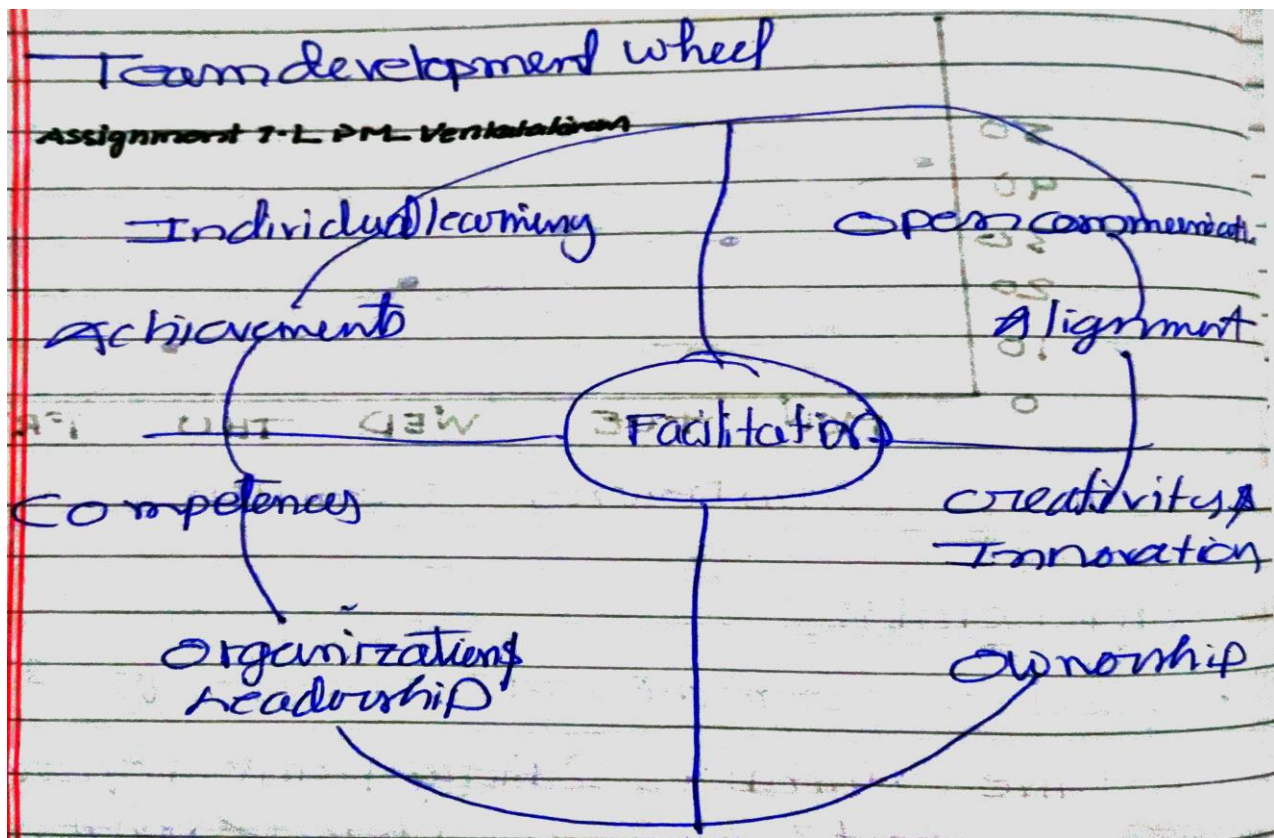 Team development wheel
Assignment 7.L PM Venkatakiran
Individual learning
Open communicati.
Achievements
Alignment
Facilitation
Competences
Creativity &
Innovation
Organization &
Leadership
Ownership